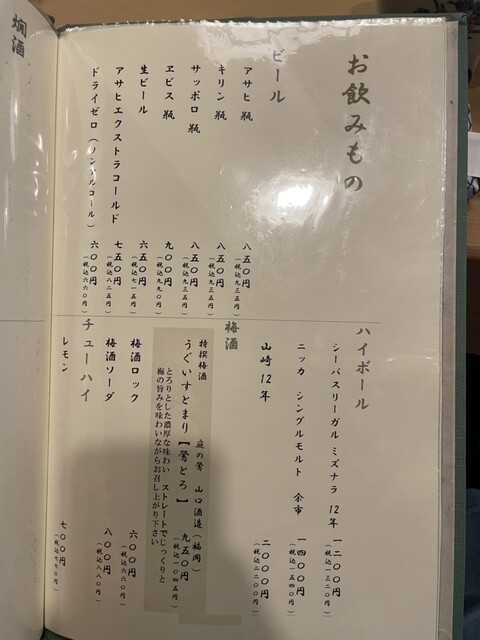 お飲みもの
ビール
アサヒ 瓶 八五〇円
（税込九三五円）
キリン 瓶 八五〇円
（税込九三五円）
サッポロ 瓶 八五〇円
（税込九三五円）
ヱビス 瓶 九〇〇円
（税込九九〇円）
生ビール 六五〇円
（税込七一五円）
アサヒエクストラコールド 七五〇円
（税込八二五円）
ドライゼロ（ノンアルコール） 六〇〇円
（税込六六〇円）
ハイボール
シーバスリーガル ミズナラ 12年 一二〇〇円
（税込一三二〇円）
ニッカ シングルモルト 余市 一四〇〇円
（税込一五四〇円）
山崎 12年 二〇〇〇円
（税込二二〇〇円）
梅酒
特撰梅酒 庭の鶯 山口酒造（福岡）
うぐいすとまり【鶯とろ】 九五〇円
（税込一〇四五円）
とろりとした濃厚な味わい ストレートでじっくりと
梅の旨みを味わいながらお召し上がり下さい
梅酒ロック 六〇〇円
（税込六六〇円）
梅酒ソーダ 八〇〇円
（税込八八〇円）
チューハイ
レモン 七〇〇円
（税込七七〇円）
燗酒